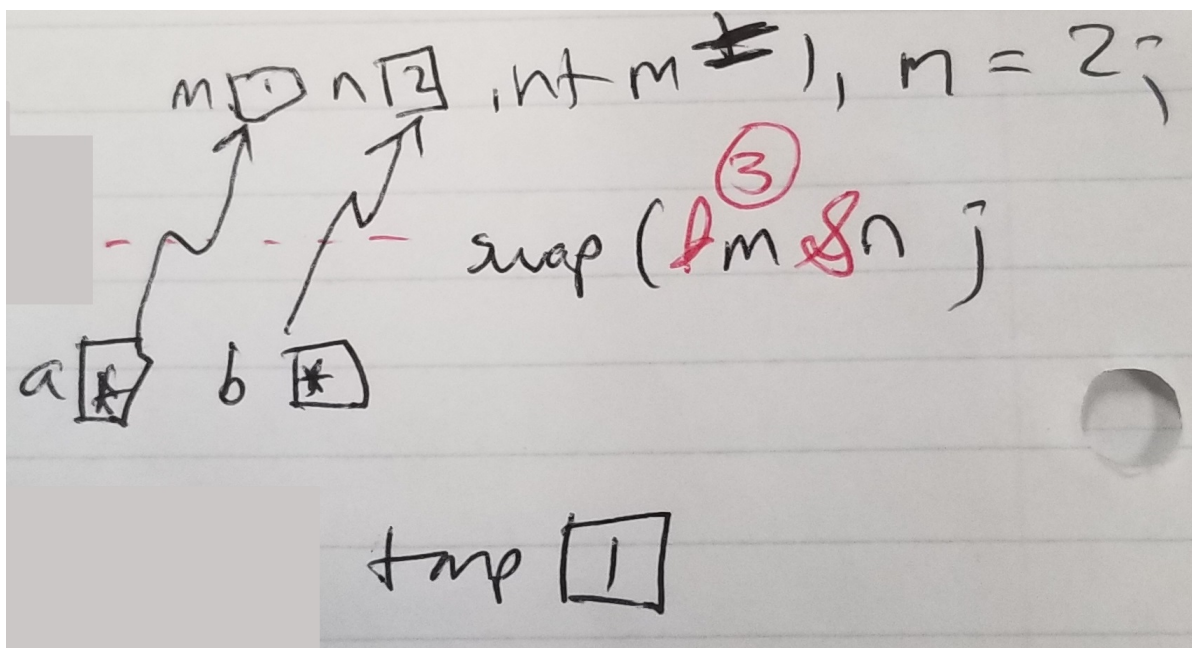 m 1 n 2 int m = 1, n = 2;
3
swap (&m &n ;
a * b *
tmp 1